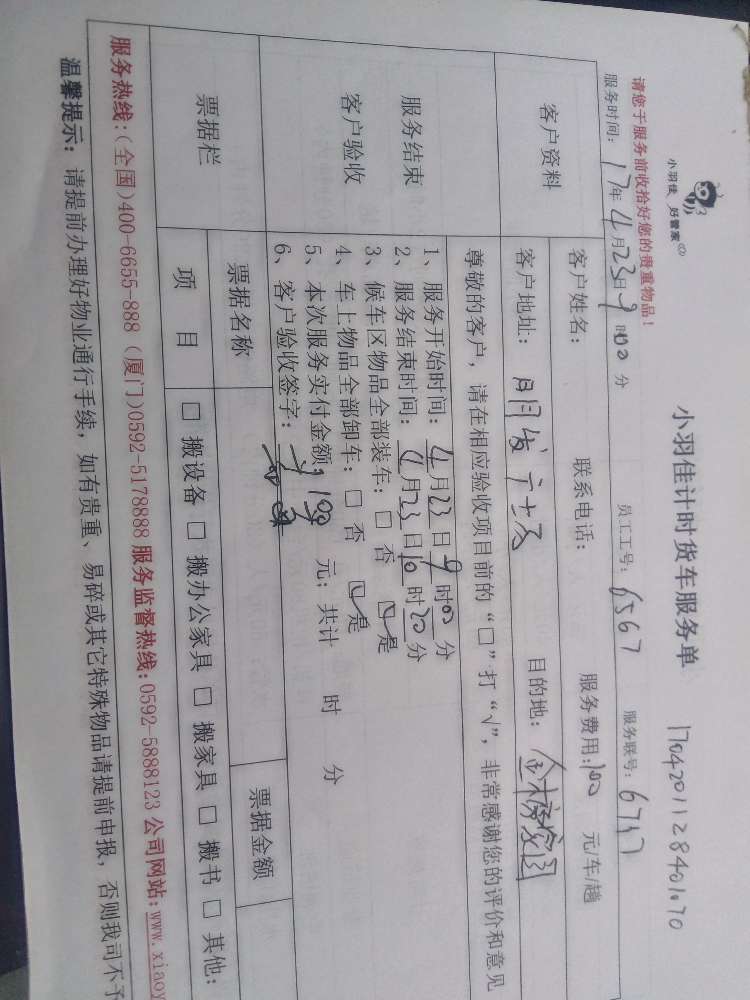 小羽佳 好管家
小羽佳计时货车服务单
1704201128401070
请您于服务前收拾好您的贵重物品！
服务时间：17年4月23日9时00分 员工工号：6567 服务联号：6747
客户资料
客户姓名： 联系电话： 服务费用：100 元/车/趟
客户地址： 目的地：
尊敬的客户，请在相应验收项目前的“□”打“√”，非常感谢您的评价和意见
服务结束
客户验收
1、服务开始时间：4月23日9时00分
2、服务结束时间：4月23日10时20分
3、候车区物品全部装车：□ 否 ☑ 是
4、车上物品全部卸车：□ 否 ☑ 是
5、本次服务实付金额：100 元；共计 时 分
6、客户验收签字：
票据栏
票据名称 票据金额
项 目 □ 搬设备 □ 搬办公家具 □ 搬家具 □ 搬书 □ 其他：
服务热线：（全国）400-6655-888（厦门）0592-5178888 服务监督热线：0592-5888123 公司网站：www.xiaoy
温馨提示：请提前办理好物业通行手续，如有贵重、易碎或其它特殊物品请提前申报，否则我司不予